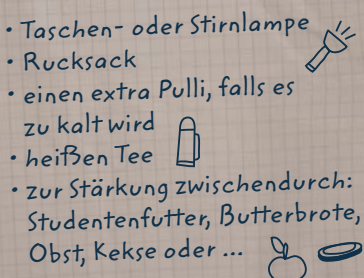 • Taschen- oder Stirnlampe
• Rucksack
• einen extra Pulli, falls es
zu kalt wird
• heißen Tee
• zur Stärkung zwischendurch:
Studentenfutter, Butterbrote,
Obst, Kekse oder ...